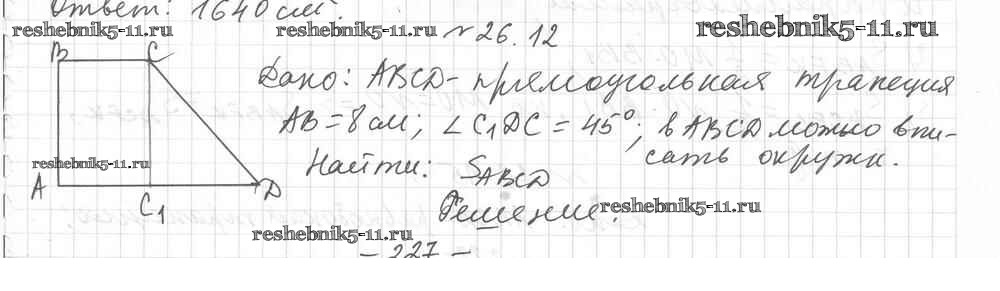 Ответ: 1640 см².
reshebnik5-11.ru reshebnik5-11.ru № 26.12 reshebnik5-11.ru
B C
Дано: ABCD - прямоугольная трапеция
AB = 8 см; ∠C₁DC = 45°; в ABCD можно впи-
сать окружн.
reshebnik5-11.ru
Найти: S_ABCD
A C₁ D
Решение: reshebnik5-11.ru
reshebnik5-11.ru
- 227 -